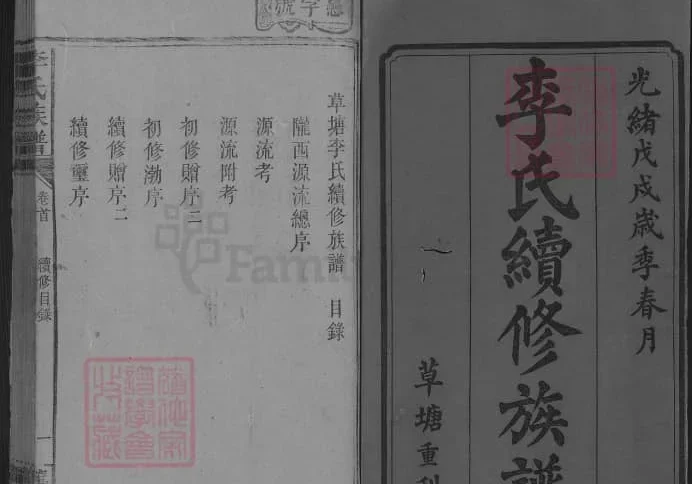 光緒戊戌歲季春月
李氏續修族譜
草塘重刊
草塘李氏續修族譜 目錄
隴西源流總序
源流考
源流附考
初修贈序二
初修渤序
續修贈序二
續修璽序
李氏族譜
卷首
續修目錄
一